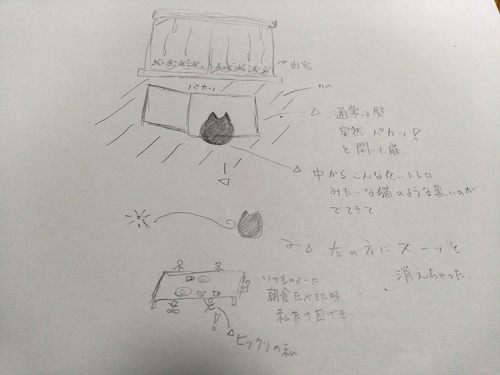 出窓
パカッ
カベ
通常は壁
突然パカッ!
と開いた扉
中からこんなたいトトロ
みたーな猫のような黒いのが
でてきて
左の方にスーッと
消えちゃった
いつものように
朝食たべてた時
私だけ目げき
!
ビックリの私